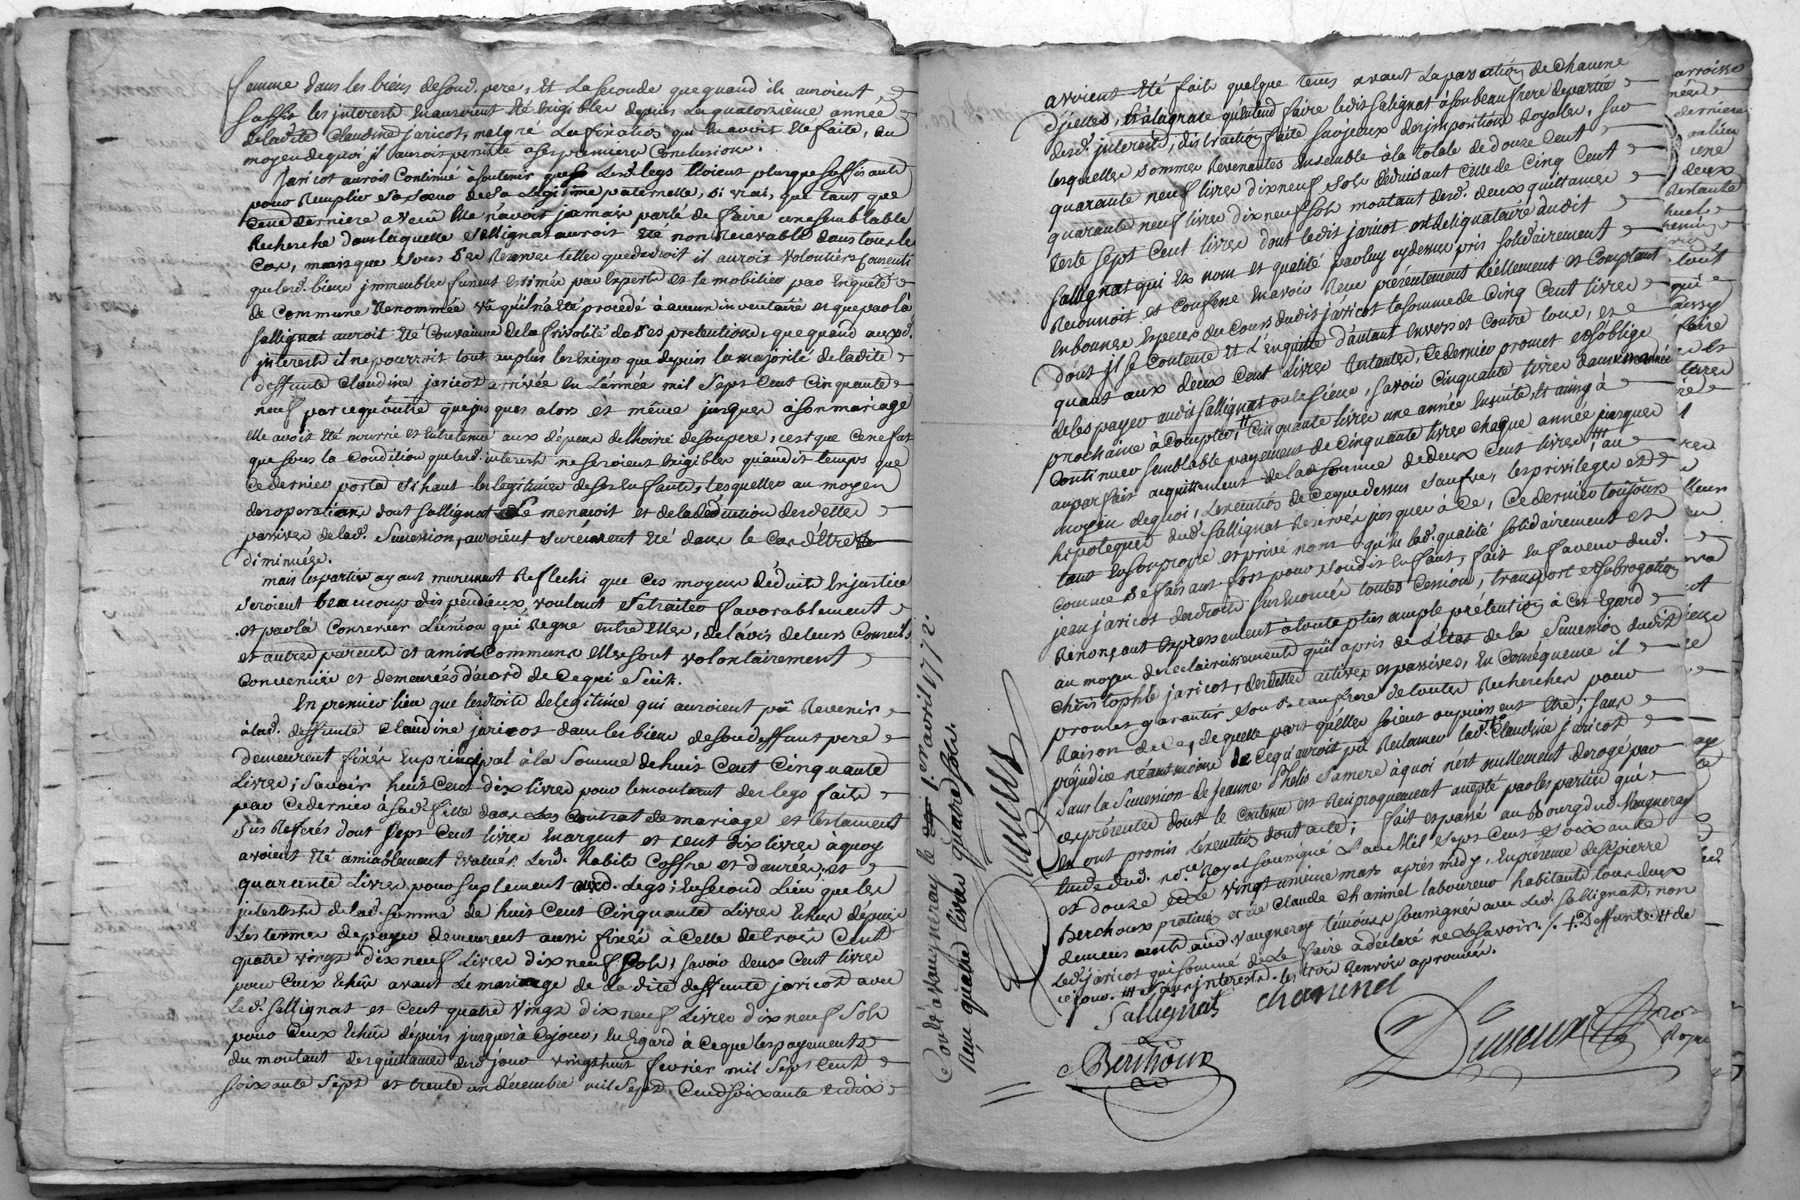 femme dans les biens de son d. pere, et la seconde que quand ils auroient
suffit les interets n'auroient été exigibles depuis la quatorzieme année
de ladite Claudine jaricot, malgré la fixation qui en avoit été faite, au
moyen de quoi il auroit persisté a ses premieres Conclusions.
jaricot auroit Continué à soutenir que lesd. legs étoient plus que suffisants
pour remplir sa soeur de sa Legitime paternelle, si vrai, que tant que
Cette derniere a vecu elle n'avoit jamais parlé de faire une semblable
Recherche dans laquelle Sallignat auroit été non Recevable dans tous les
Cas, mais que sous des Reserves telles que de droit il auroit volontiers Consenti
que lesd. biens immeubles fussent estimés par Experts et le mobilier par Enquête
de Commune Renommée vu qu'il n'a été procedé à aucun inventaire et que par là
Sallignat auroit été Convaincu de la frivolité de ses pretentions, que quand auxd.
interests il ne pourroit tout au plus les Exiger que depuis la majorité de ladite
deffunte Claudine jaricot arrivée en L'année mil Sept Cent Cinquante
neuf parce qu'outre que jusques alors et même jusques à son mariage
elle avoit été nourrie et entretenue aux dépens de l'hoirie de son pere, c'est que ce ne fut
que sous la Condition que lesd. interests ne seroient Exigibles qu'audit temps que
Ce dernier porta si haut les legitimes de ses Enfants, lesquelles au moyen
des operations dont Sallignat le menacoit et de la déduction des dettes
passives de lad. Succession, auroient surement été dans le Cas d'être
diminuées.
mais les parties ayant murement Reflechi que Ces moyens déduits En justice
seroient beaucoup dispendieux, voulant se traiter favorablement
et par là Conserver L'union qui Regne entre Elles, de l'avis de leurs Conseils
et autres parents et amis Communs Elles sont volontairement
Convenues et demeurées d'acord de Ce qui suit.
En premier lieu que les droits de legitime qui auroient pû Revenir
à lad. deffunte Claudine jaricot dans les biens de son deffunt pere
demeurent fixés En principal à la Somme de huit Cent Cinquante
Livres; savoir huit Cent dix livres pour le montant des legs faits
par Ce dernier à sad. fille dans les Contrat de mariage et testament
sus Referés dont Sept Cent livres En argent et Cent dix livres à quoy
avoient été amiablement Evalués lesd. habits Coffre et danrées, et
quarante Livres pour suplement auxd. Legs; En second Lieu que les
interests de lad. Somme de huit Cent Cinquante Livres Echus depuis
Les termes de payer demeurent aussi fixés à Celle de trois Cent
quatre vingt dix neuf Livres dix neuf Sols, savoir deux Cent livres
pour Ceux Echûs avant Le mariage de la dite deffunte jaricot avec
Led. Sallignat et Cent quatre vingt dix neuf Livres dix neuf Sols
pour Ceux Echûs depuis jusqu'à Ce jour, En Egard à Ce que les payements
du montant des quittances desd. jour vingt huit fevrier mil Sept Cent
soixante Sept et trente un decembre mil Sept Cent soixante et dix
Controlé à vaugneray le 1er. avril 1772.
Reçu quatre livres quatre sols.
avoient été faits quelque tems avant la passation de Chacune
d'icelles, Et à la grace qu'entend faire ledit Salignat à son beau frere de partie
desd. interests, distraction faite sur iceux des impositions Royales,
lesquelles sommes Revenantes Ensemble à la totale de douze Cent
quarante neuf livres dix neuf Sols déduisant Celle de Cinq Cent
quarante neuf livres dix neuf sols montant desd. deux quittances
Reste Sept Cent livres dont ledit jaricot Est Reliquataire audit
Sallignat qui Es noms et qualité par luy cy dessus pris solidairement
Reconnoit et Confesse En avoir Reçu présentement Réellement et Comptant
En bonnes Especes du Cours dudit jaricot la somme de Cinq Cent livres
dont il se Contente Et L'Enquitte d'autant Envers et Contre tous, et
quant aux deux Cent Livres Restantes, Ce dernier promet et s'oblige
de les payer audit Sallignat ou les siens, savoir Cinquante livres dans une année
prochaine à Compter, # Cinquante livres une année Ensuite et ainsy à
Continuer semblable payement de Cinquante livres chaque année jusques
au parfait acquittement de lad. somme de deux Cent livres ### au
moyen de quoi, L'execution de Ce que dessus sauf les privileges et
hipoteques dud. Sallignat Reservés jusques à Ce, Ce dernier toujours
tant En son propre et privé nom qu'en lad. qualité solidairement et
Comme se faisant fort pour son dit Enfant, fait En faveur dud.
jean jaricot toutes Cession, transport et subrogation
Renonçant Expressement à toute plus ample prétention à Cet Egard
au moyen des eclaircissements qu'il a pris de L'état de la Succession dudit
Christophle jaricot, des dettes actives et passives, En Consequence il
promet garantir son beau frere de toutes Recherches pour
Raison de Ce, de quelle part qu'elles soient ou puissent être; sans
préjudice néantmoins de Ce qu'auroit pu Reclamer lad. +to Claudine jaricot
dans la Succession de Jeanne Thelis sa mere à quoi n'est nullement derogé par
Ces présentes dont le Contenu est Reciproquement accepté par les parties qui
En ont promis L'execution dont acte; fait et passé au Bourg dud. vaugneray
Etude dud. no.re Royal soussigné L'an Mil Sept Cent Soixante
et douze Et Le vingt uneme mars après midy, En présence de Sr pierre
Berchoux praticien et de Claude Charinel laboureur habitants tous deux
demeurants aud. vaugneray témoins soussignés avec Led. Sallignat, non
Led. jaricot qui sommé de Le faire a déclaré ne Le Savoir. /. +. Deffunte # de
Ce jour. ### Sans interests. les trois Renvois aprouvés.
Sallignat Charinel
Berthoux